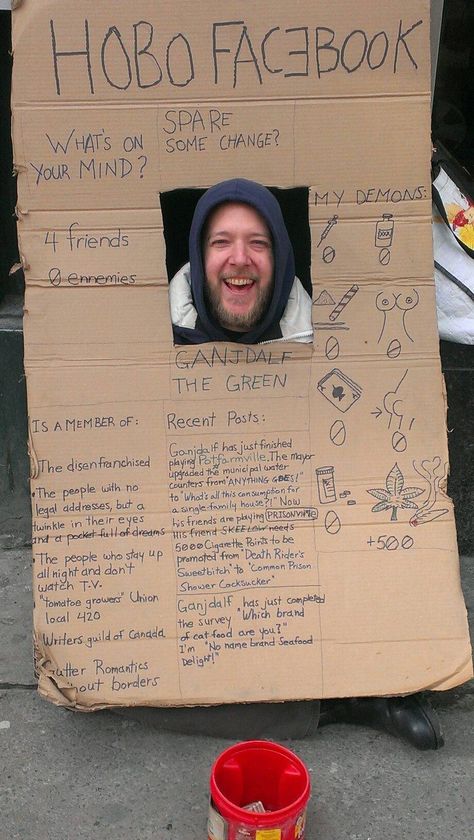 HOBO FACEBOOK
WHAT'S ON
YOUR MIND?
SPARE
SOME CHANGE?
4 friends
0 ennemies
MY DEMONS:
0 0
0 0
0 0
0
+500
GANJDALF
THE GREEN
IS A MEMBER OF:
The disenfranchised
• The people with no
legal addresses, but a
twinkle in their eyes
and a pocket full of dreams
• The people who stay up
all night and don't
watch T.V.
• "Tomatoe growers" Union
local 420
Writers guild of Canada
Gutter Romantics
out borders
Recent Posts:
Ganjdalf has just finished
playing Potfarmville. The mayor
upgraded the municipal water
counters from "ANYTHING GOES!"
to "What's all this consumption for
a single-family house?!" Now
his friends are playing PRISONVILLE
His friend SKEELOW needs
5000 Cigarette Points to be
promoted from "Death Rider's
Sweetbitch" to "Common Prison
Shower Cocksucker"
Ganjdalf has just completed
the survey "Which brand
of cat food are you?"
I'm "No name brand Seafood
Delight!"